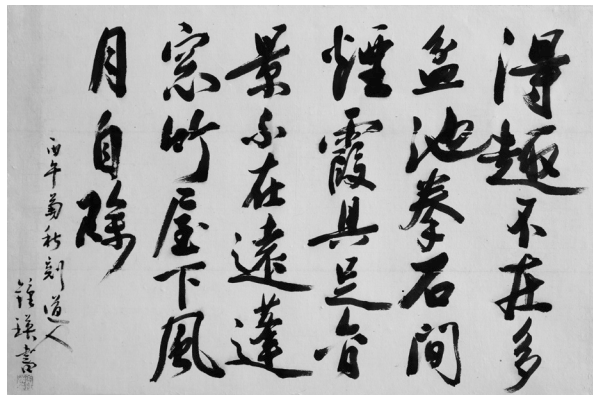 得趣不在多
盆池拳石間
煙霞具足會
景不在遠蓬
窓竹屋下風
月自賒
丙午菊秋刻道人
鍾瑛書